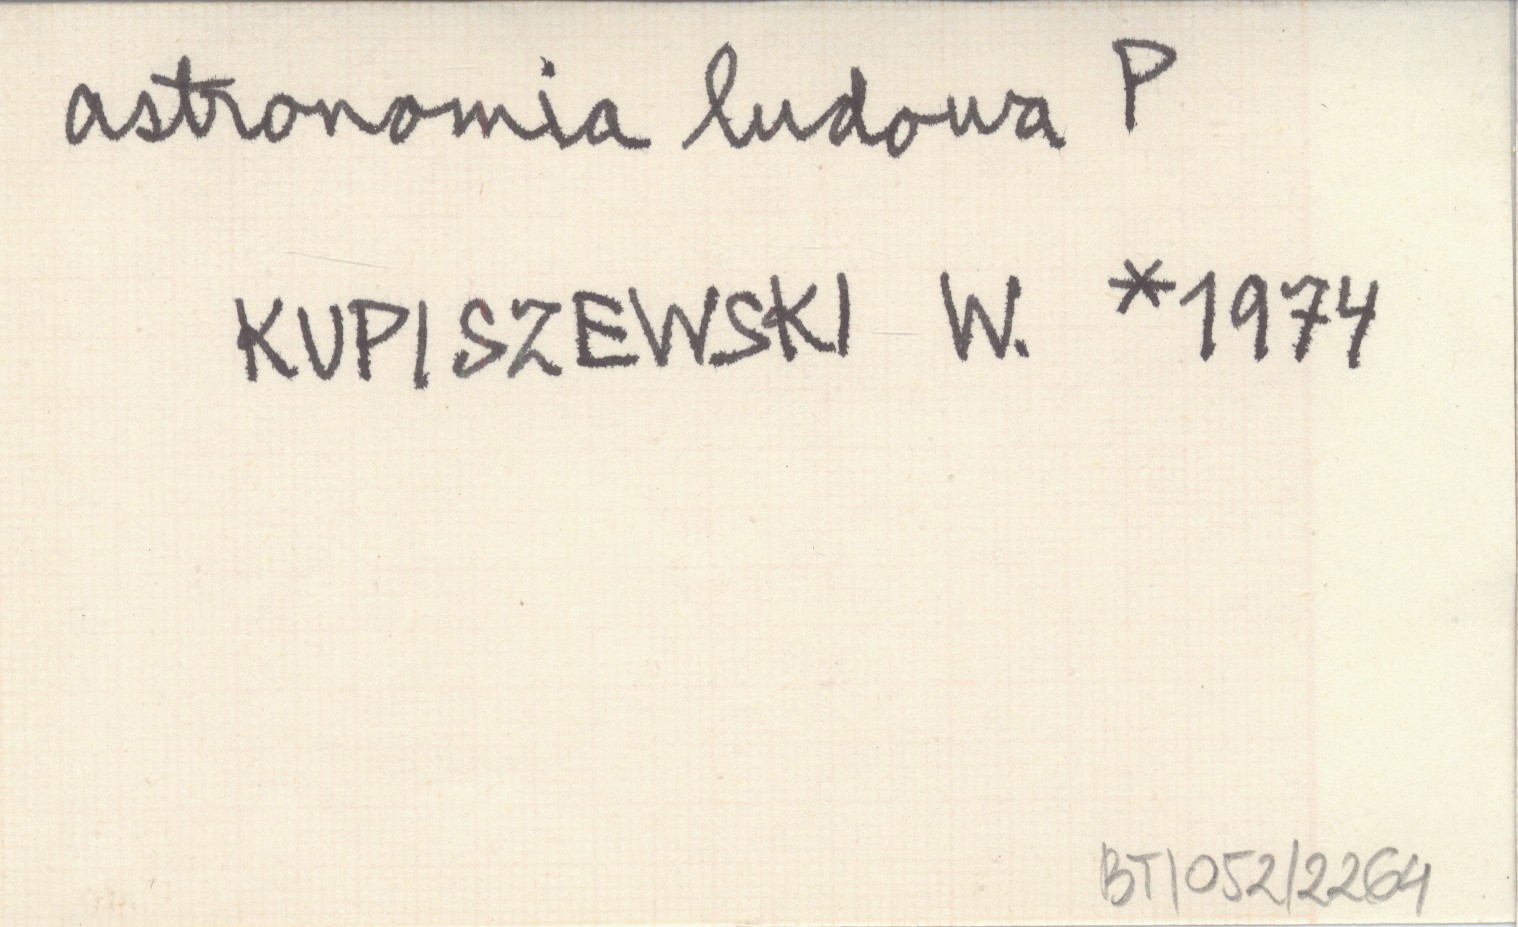 astronomia ludowa P
KUPISZEWSKI W. *1974
BT/052/2264